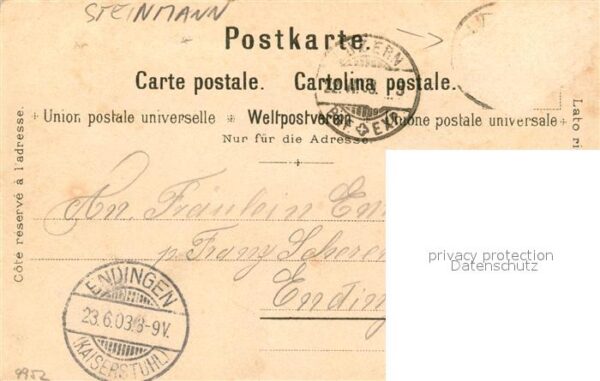 STEINMANN
Postkarte.
Carte postale. Cartolina postale.
+ Union postale universelle * Weltpostverein * Unione postale universale +
Nur für die Adresse.
Côte réservé à l'adresse.
Lato ri
LUZERN
BRF. EXP.
An Fräulein Em
p. Franz Scherer
Endin
ENDINGEN
23.6.03.8-9V.
(KAISERSTUHL)
privacy protection
Datenschutz
9952